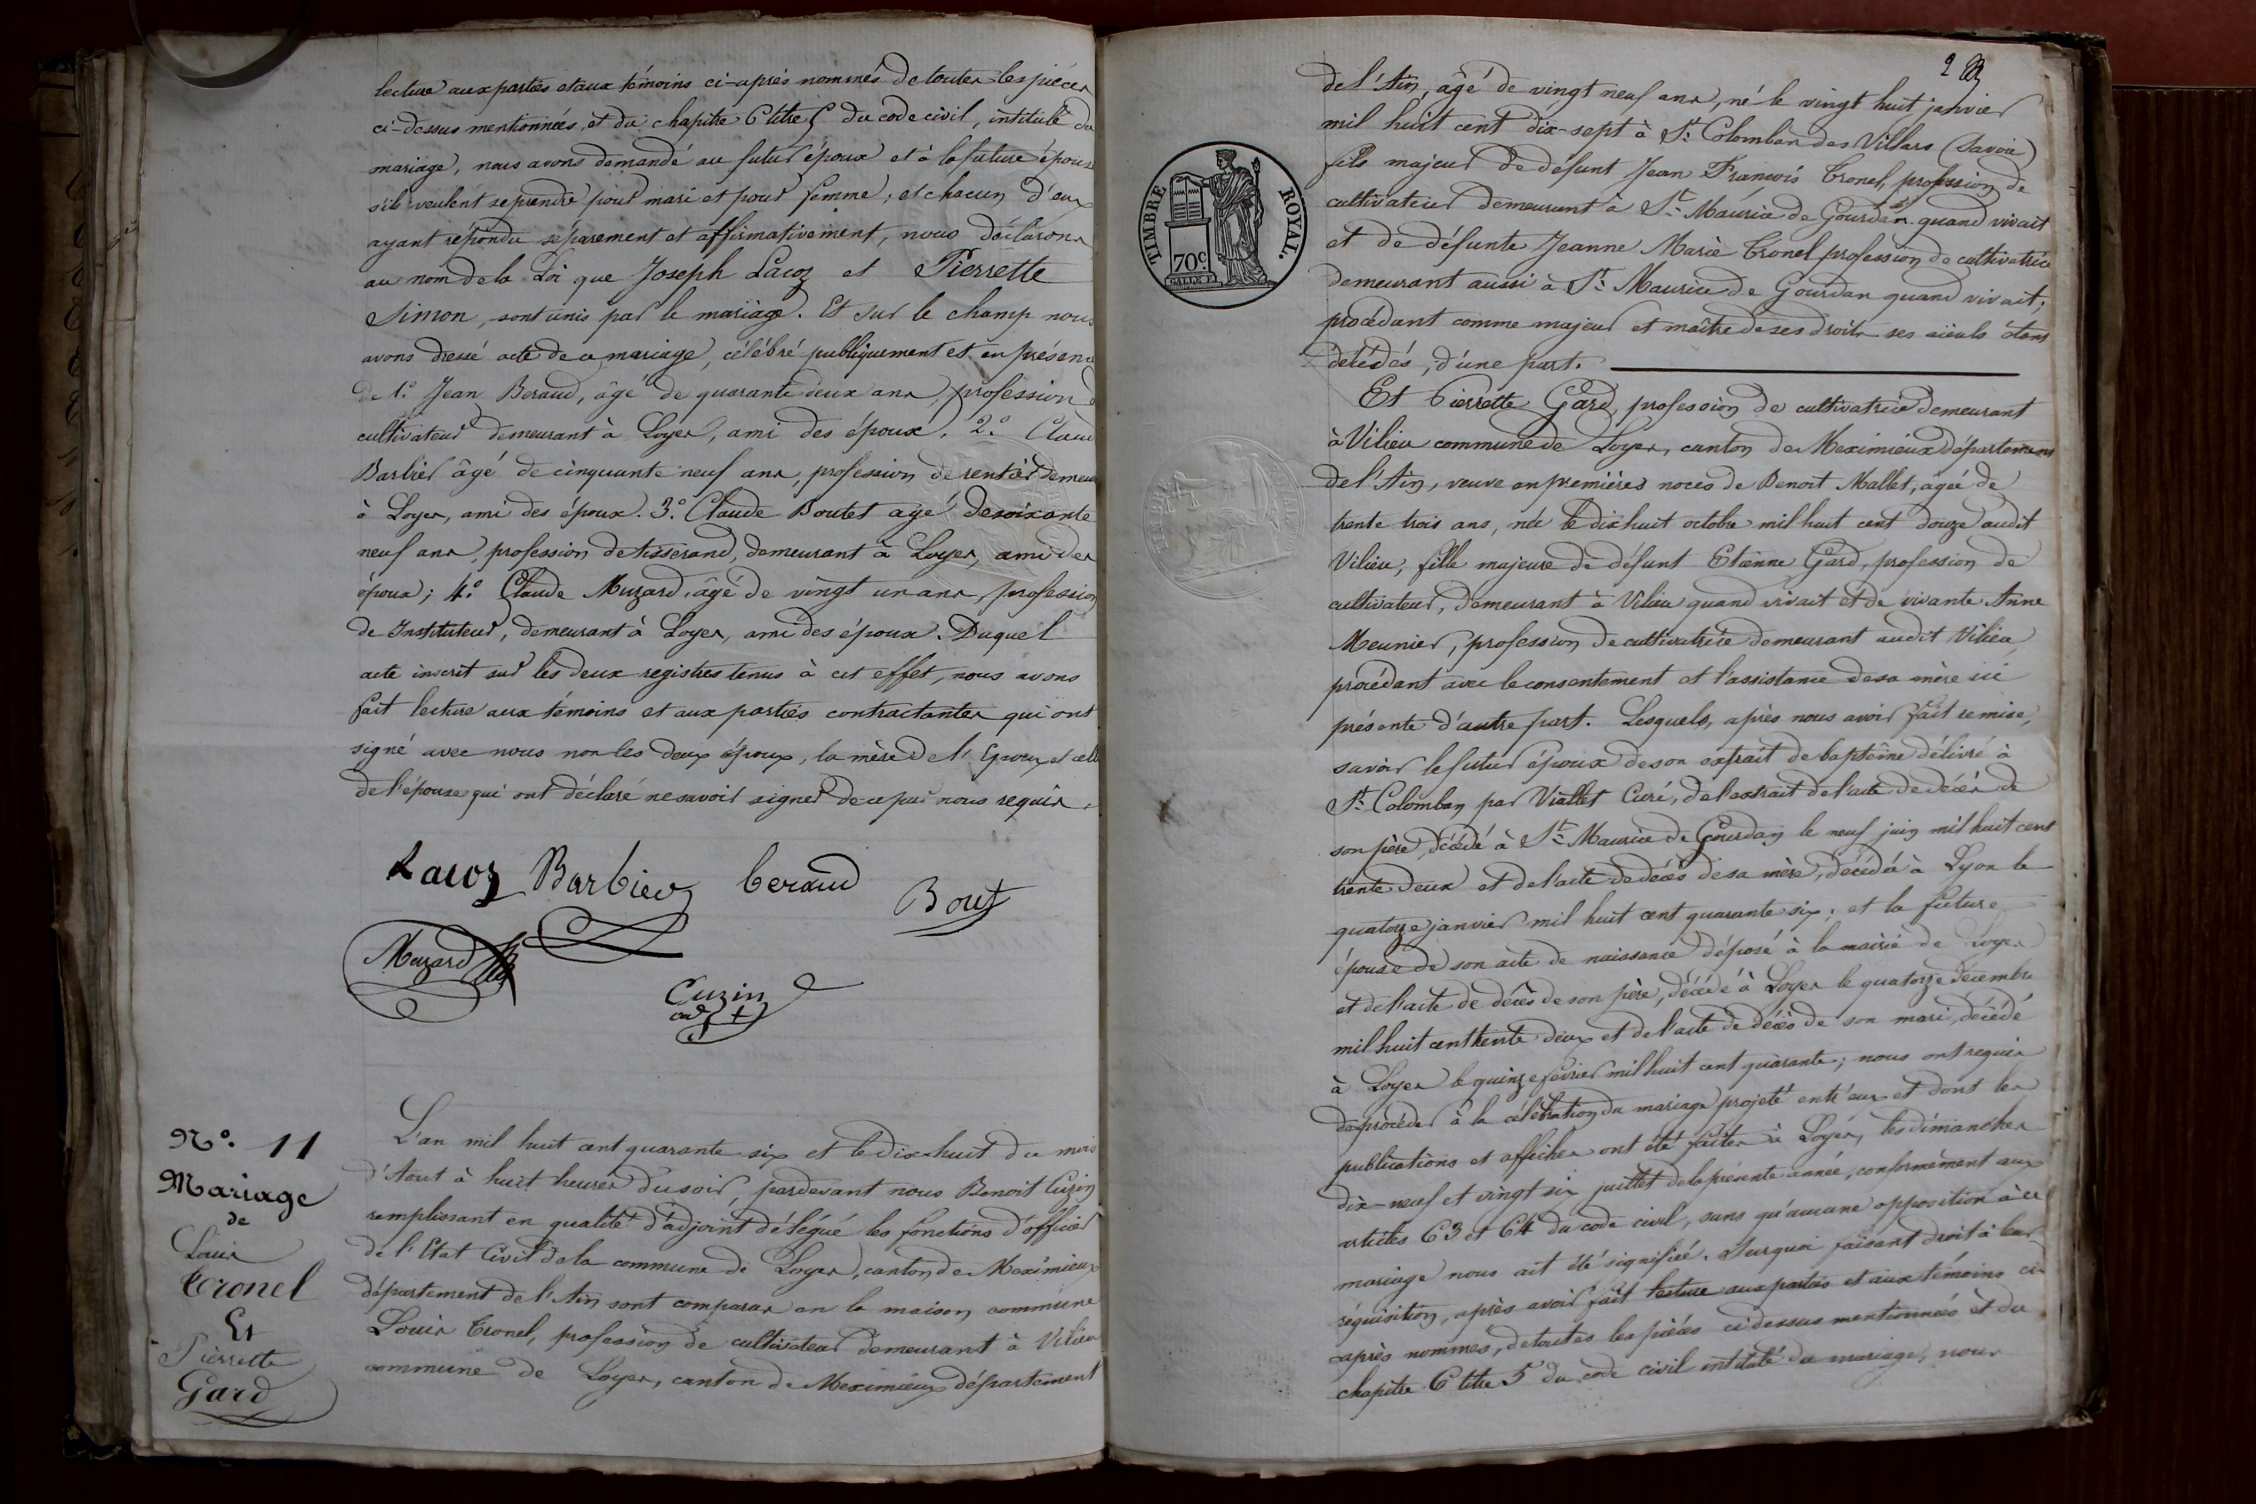 lecture aux parties et aux témoins ci-après nommés de toutes les pièces
ci-dessus mentionnées, et du chapitre 6 titre 5 du code civil, intitulé du
mariage, nous avons demandé au futur époux et à la future épouse
s'ils veulent se prendre pour mari et pour femme; et chacun d'eux
ayant répondu séparement et affirmativement, nous déclarons
au nom de la Loi que Joseph Lacoz et Pierrette
Simon, sont unis par le mariage. Et sur le champ nous
avons dressé acte de ce mariage, célébré publiquement et en présence
de 1.° Jean Beraud, âgé de quarante deux ans, profession
cultivateur demeurant à Loyes, ami des époux. 2.° Claude
Barbier âgé de cinquante neuf ans, profession de rentier demeu
à Loyes, ami des époux. 3.° Claude Boutet agé de soixante
neuf ans, profession de tisserand, demeurant à Loyes, ami des
époux; 4.° Claude Muzard, âgé de vingt un ans, profession
de Instituteur, demeurant à Loyes, ami des époux. Duquel
acte inscrit sur les deux registres tenus à cet effet, nous avons
fait lecture aux témoins et aux parties contractantes qui ont
signé avec nous non les deux époux, la mère de l'Epoux et celle
de l'épouse qui ont déclaré ne savoir signer de ce par nous requis.
Lacoz Barbier beraud
Bout
Muzard
Cuzin
N.° 11
Mariage
de
Louis
Tronel
Et
Pierrette
Gard
L'an mil huit cent quarante six et le dix huit du mois
d'Aout à huit heures du soir, pardevant nous Benoit Cuzin
remplissant en qualité d'adjoint délégué les fonctions d'officier
de l'Etat Civil de la commune de Loyes, canton de Meximieux
département de l'Ain sont comparus en la maison commune
Louis Tronel, profession de cultivateur demeurant à Vilieu
commune de Loyes, canton de Meximieux département
2
TIMBRE ROYAL.
70c
de l'Ain, âgé de vingt neuf ans, né le vingt huit janvier
mil huit cent dix-sept à St. Colomban des Villars (Savoie)
fils majeur de défunt Jean François Tronel, profession de
cultivateur demeurant à St. Maurice de Gourdan quand vivait
et de défunte Jeanne Marie Tronel profession de cultivatrice
demeurant aussi à St. Maurice de Gourdan quand vivait;
procédant comme majeur et maître de ses droits ses aïeuls étans
décédés, d'une part.
Et Pierrette Gard, profession de cultivatrice demeurant
à Vilieu commune de Loyes, canton de Meximieux département
de l'Ain, veuve en premières noces de Benoit Mallet, agée de
trente trois ans, née le dix huit octobre mil huit cent douze audit
Vilieu; fille majeure de défunt Etienne Gard, profession de
cultivateur, demeurant à Vilieu quand vivait et de vivante Anne
Meunier, profession de cultivatrice demeurant audit Vilieu
procédant avec le consentement et l'assistance de sa mère ici
présente d'autre part. Lesquels, après nous avoir fait remise,
savoir le futur époux de son extrait de baptême délivré à
St. Colomban par Viallet Curé, de l'extrait de l'acte de décès de
son père, décédé à St. Maurice de Gourdan le neuf juin mil huit cent
trente deux et de l'acte de décès de sa mère, décédée à Lyon le
quatorze janvier mil huit cent quarante six; et la future
épouse de son acte de naissance déposé à la mairie de Loyes
et de l'acte de décès de son père, décédé à Loyes le quatorze decembre
mil huit cent trente deux et de l'acte de décès de son mari, décédé
à Loyes le quinze fevrier mil huit cent quarante; nous ont requis
de procéder à la célébration du mariage projeté entr'eux et dont les
publications et affiches ont été faites à Loyes, les dimanches
dix-neuf et vingt six juillet de la présente année, conformément aux
articles 63 et 64 du code civil, sans qu'aucune opposition à ce
mariage nous ait été signifiée. Surquoi faisant droit à leur
réquisition, après avoir fait lecture aux parties et aux témoins ci-
après nommés, de toutes les pièces ci dessus mentionnées et du
chapitre 6 titre 5 du code civil intitulé du mariage, nous